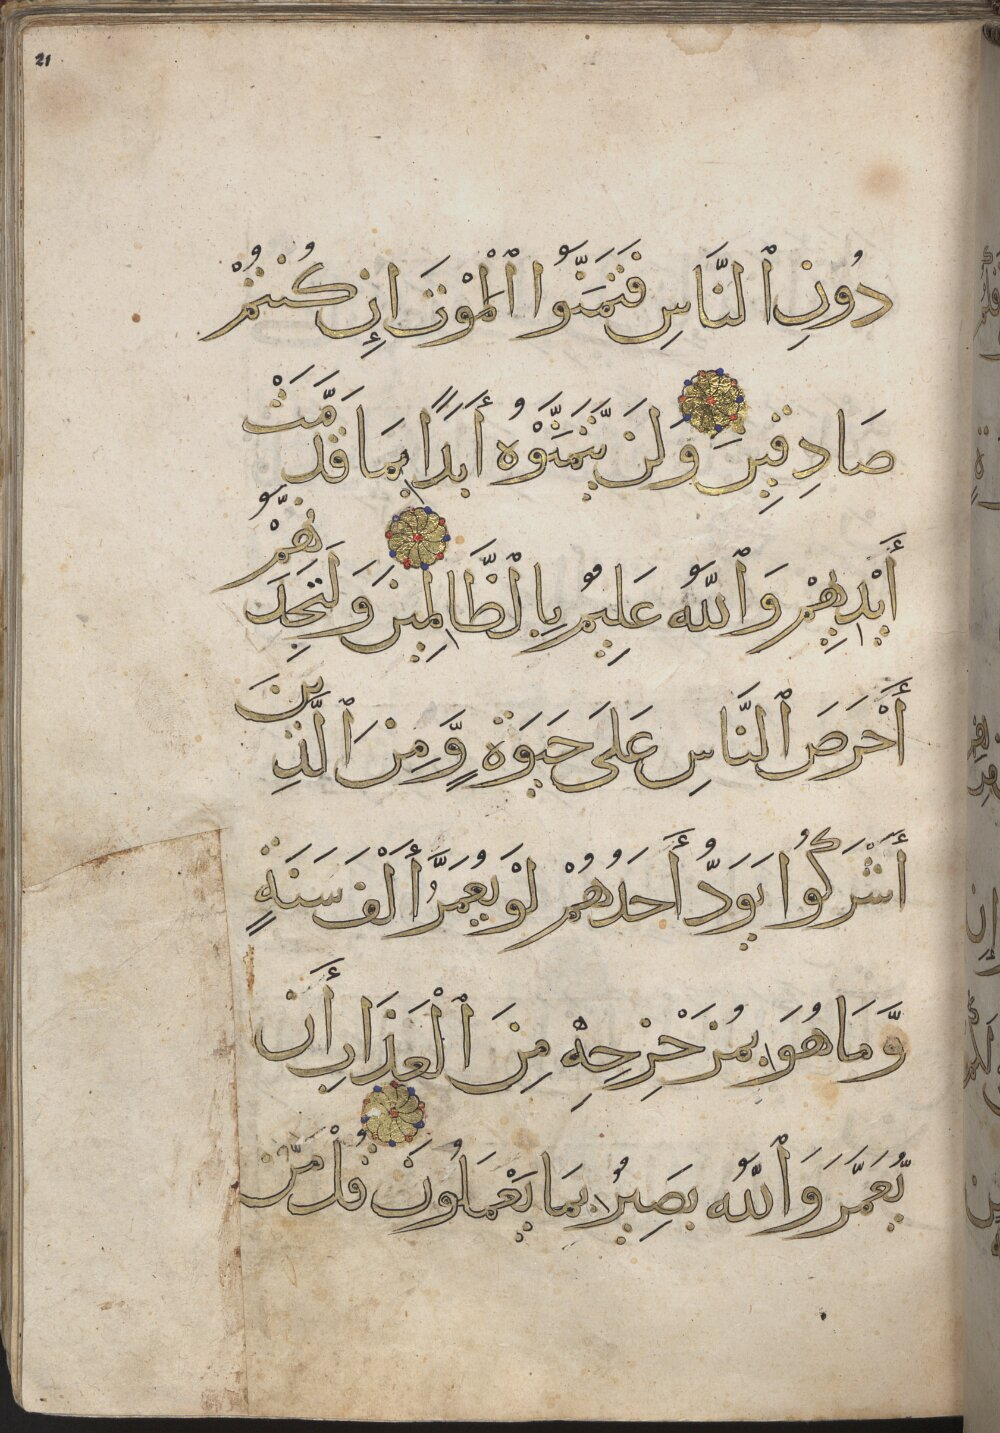 21
دُونِ ٱلنَّاسِ فَتَمَنَّوُا ٱلْمَوْتَ إِن كُنتُمْ
صَادِقِينَ وَلَن يَّتَمَنَّوْهُ أَبَدًا بِمَا قَدَّمَتْ
أَيْدِيهِمْ وَٱللَّهُ عَلِيمٌ بِٱلظَّالِمِينَ وَلَتَجِدَنَّهُمْ
أَحْرَصَ ٱلنَّاسِ عَلَى حَيَوٰةٍ وَّمِنَ ٱلَّذِينَ
أَشْرَكُوا يَوَدُّ أَحَدُهُمْ لَوْ يُعَمَّرُ أَلْفَ سَنَةٍ
وَّمَا هُوَ بِمُزَحْزِحِهِ مِنَ ٱلْعَذَابِ أَن
يُّعَمَّرَ وَٱللَّهُ بَصِيرٌ بِمَا يَعْمَلُونَ قُلْ مَن